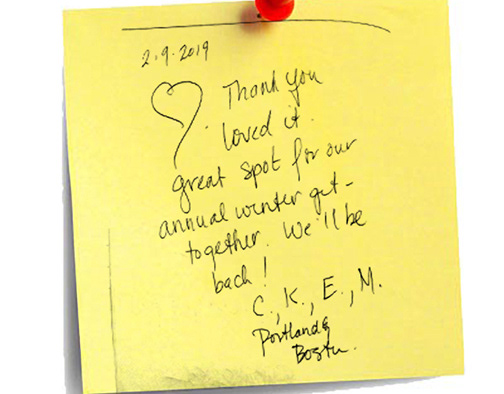 2.9.2019
Thank you
loved it.
great spot for our
annual winter get-
together. We'll be
back!
C., K., E., M.
Portland &
Boston.